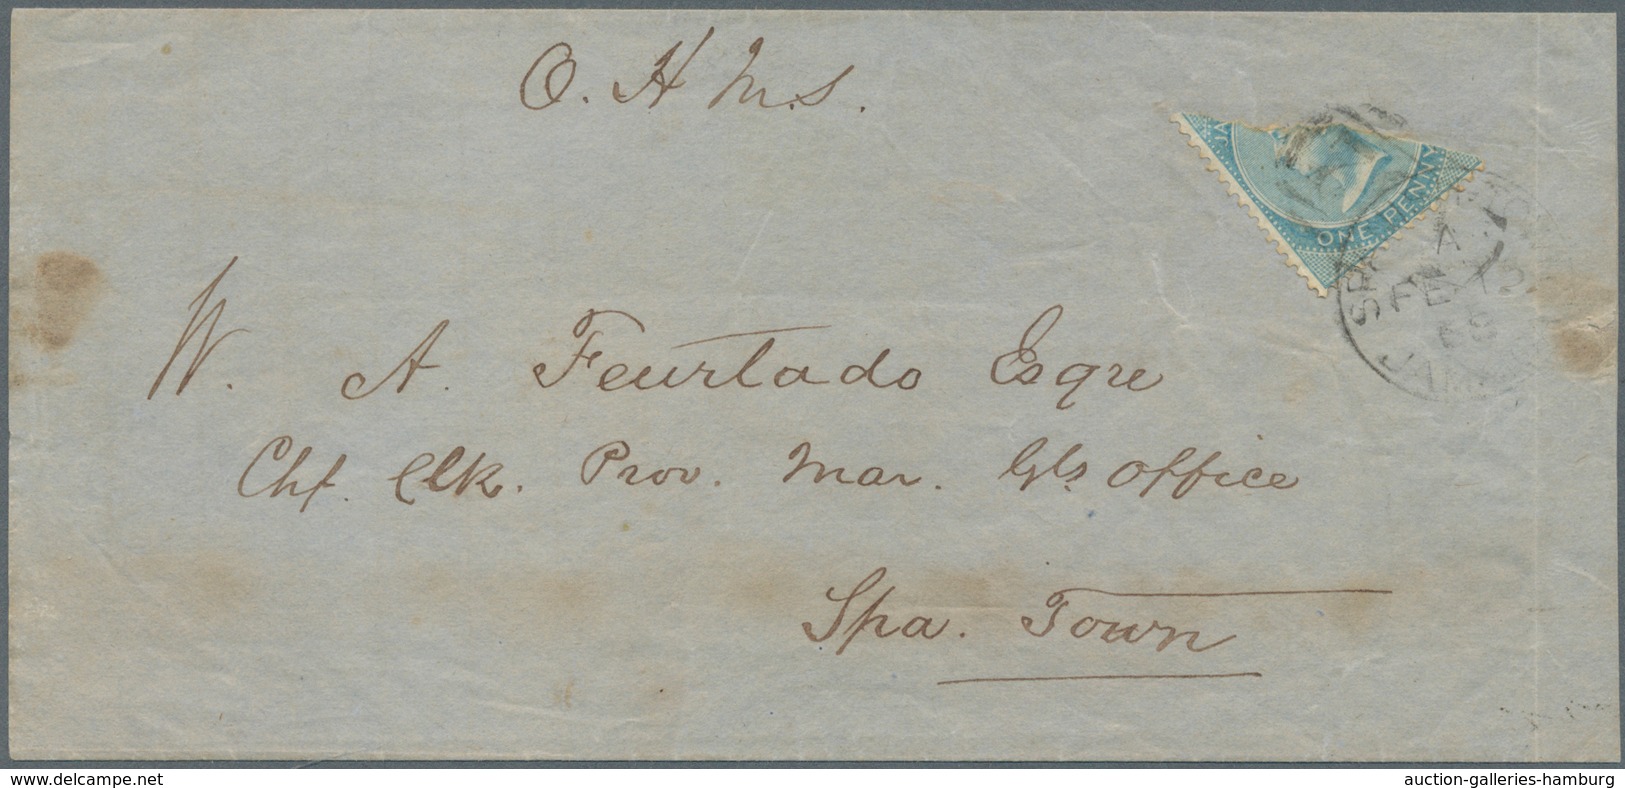 O. H M.S.
JA
ONE PENNY
A
FE 12
68
JAM
W. A. Feurtado Esqre
Chf. Clk. Prov. Mar. Gls Office
Spa. Town
www.delcampe.net
auction-galleries-hamburg